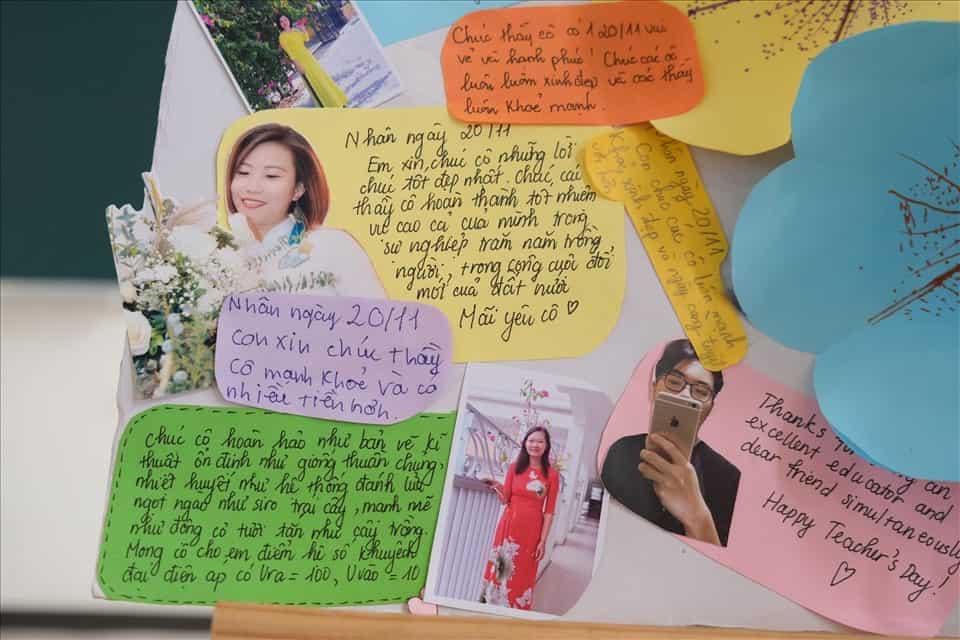 Chúc thầy cô có 1 20/11 vui
vẻ và hạnh phúc! Chúc các cô
luôn luôn xinh đẹp và các thầy
luôn khoẻ mạnh.
Nhân ngày 20/11
Em xin chúc cô những lời
chúc tốt đẹp nhất. Chúc các
thầy cô hoàn thành tốt nhiệm
vụ cao cả của mình trong
sự nghiệp trăm năm trồng
người, trong công cuộc đổi
mới của đất nước
Mãi yêu cô ♡
ngày 20/11
Con chúc các cô luôn mạnh
khoẻ, xinh đẹp và ngày càng
Nhân ngày 20/11
con xin chúc thầy
cô mạnh khoẻ và có
nhiều tiền hơn.
Chúc cô hoàn hảo như bản vẽ kĩ
thuật ổn định như giống thuần chủng,
nhiệt huyết như hệ thống đánh lửa
ngọt ngào như siro trái cây, mạnh mẽ
như động cơ tươi tắn như cây trồng.
Mong cô cho em điểm hệ số khuyếch
đại điện áp có Vra = 100, Vvào = 10
Thanks for being an
excellent educator and
dear friend simultaneously
Happy Teacher's Day!
♡